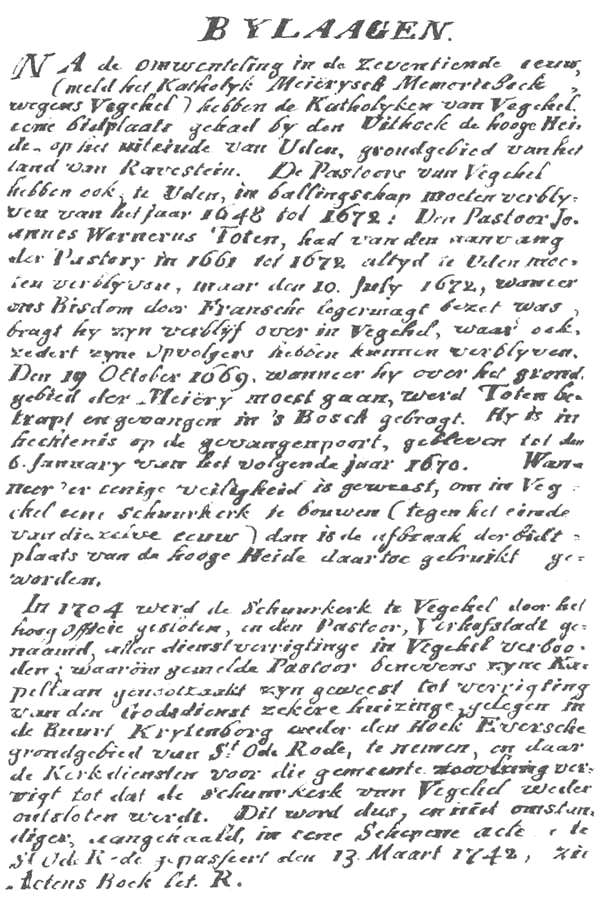 BYLAAGEN.
NA de omwenteling in de zeventiende eeuw,
(meld het Katholyk Meiërysch Memorieboek,
wegens Vegchel) hebben de Katholyken van Vegchel
eene bidplaats gehad by den Uithoek de hooge Hei-
de op het uiteinde van Uden, grondgebied van het
land van Ravestein. De Pastoors van Vegchel
hebben ook, te Uden, in ballingschap moeten verbly-
ven van het jaar 1648 tot 1672: Den Pastoor Jo-
annes Wernerus Toten, had van den aanvang
der Pastory in 1661 tot 1672 altyd te Uden moe-
ten verblyven, maar den 10. July 1672, waneer
ons Bisdom door Fransche legermagt bezet was,
bragt hy zyn verblyf over in Vegchel, waar ook,
zedert zyne opvolgers hebben kunnen verblyven.
Den 19 October 1669. wanneer hy over het grond-
gebied der Meiëry moest gaan, werd Toten be-
trapt en gevangen in 's Bosch gebragt. Hy is in
hechtenis op de gevangenpoort, gebleven tot den
6. January van het volgende jaar 1670. Wan-
neer 'er eenige veiligheid is geweest, om in Veg-
chel eene schuurkerk te bouwen (tegen het einde
van die eeuw) dan is de afbraak der bidt-
plaats van de hooge Heide daar toe gebruikt ge-
worden.
In 1704 werd de schuurkerk te Vegchel door het
hoog Officie gesloten, en den Pastoor, Verhofstadt ge-
naamd, allen dienstverrigtinge in Vegchel verboo-
den; waarom gemelde Pastoor benevens zyne Ka-
pellaan genootzaakt zyn geweest tot verrigting
van den Godsdienst zekere huizinge, gelegen in
de Buurt Krytenborg onder den Hoek Eversche
grondgebied van St Ode Rode, te nemen, en daar
de Kerkdiensten voor die gemeente ver-
rigt tot dat de schuurkerk van Vegchel weder
ontsloten werdt. Dit word dus, en niet omstan-
diger, aangehaald, in eene Schepene acte te
St Ode R-de gepasseert den 13 Maart 1742, zie
Actens Boek let. R.